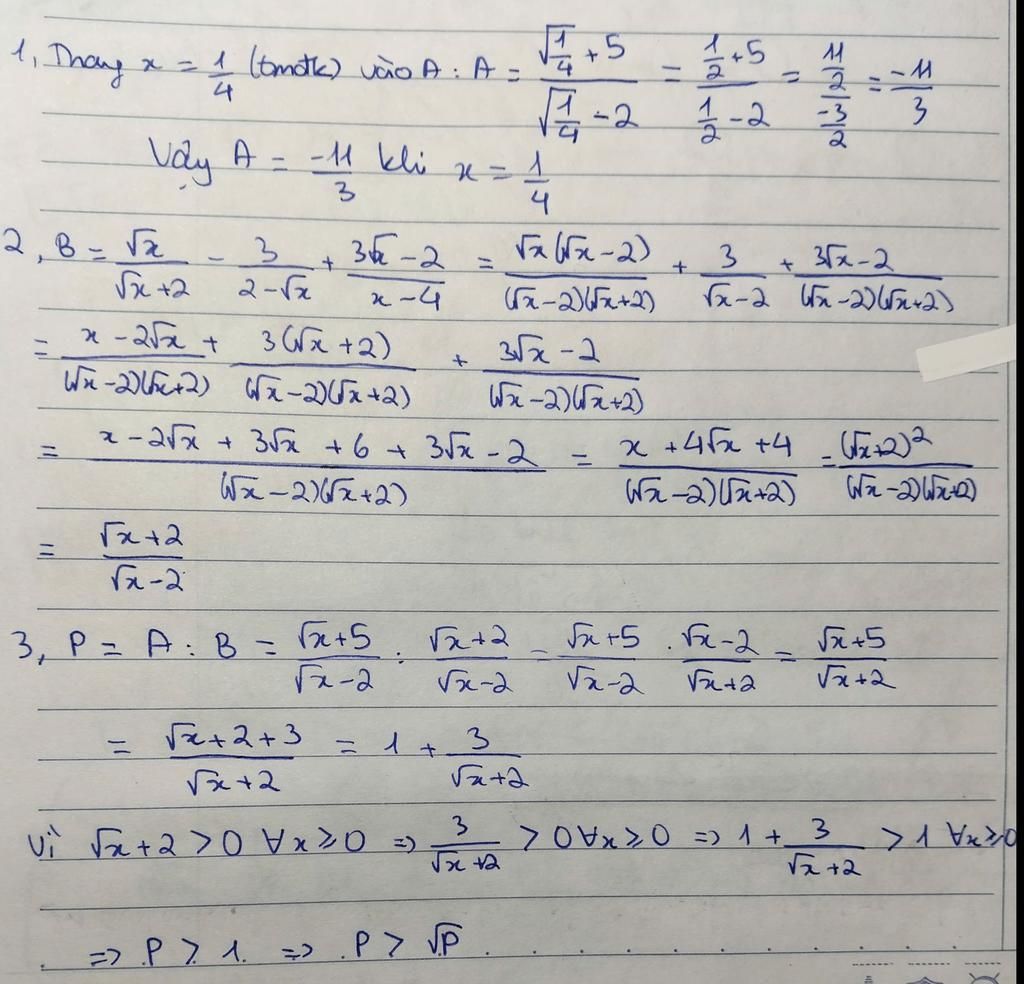 1, Thay x = 1/4 (tmđk) vào A : A = (√(1/4) + 5)/(√(1/4) - 2) = (1/2 + 5)/(1/2 - 2) = (11/2)/(-3/2) = -11/3
Vậy A = -11/3 khi x = 1/4
2, B = √x/(√x + 2) - 3/(2 - √x) + (3√x - 2)/(x - 4) = √x(√x - 2)/((√x - 2)(√x + 2)) + 3/(√x - 2) + (3√x - 2)/((√x - 2)(√x + 2))
= (x - 2√x)/((√x - 2)(√x + 2)) + 3(√x + 2)/((√x - 2)(√x + 2)) + (3√x - 2)/((√x - 2)(√x + 2))
= (x - 2√x + 3√x + 6 + 3√x - 2)/((√x - 2)(√x + 2)) = (x + 4√x + 4)/((√x - 2)(√x + 2)) = (√x + 2)²/((√x - 2)(√x + 2))
= (√x + 2)/(√x - 2)
3, P = A : B = (√x + 5)/(√x - 2) : (√x + 2)/(√x - 2) = (√x + 5)/(√x - 2) . (√x - 2)/(√x + 2) = (√x + 5)/(√x + 2)
= (√x + 2 + 3)/(√x + 2) = 1 + 3/(√x + 2)
Vì √x + 2 > 0 ∀x ≥ 0 => 3/(√x + 2) > 0 ∀x ≥ 0 => 1 + 3/(√x + 2) > 1 ∀x ≥ 0
=> P > 1 => P > √P